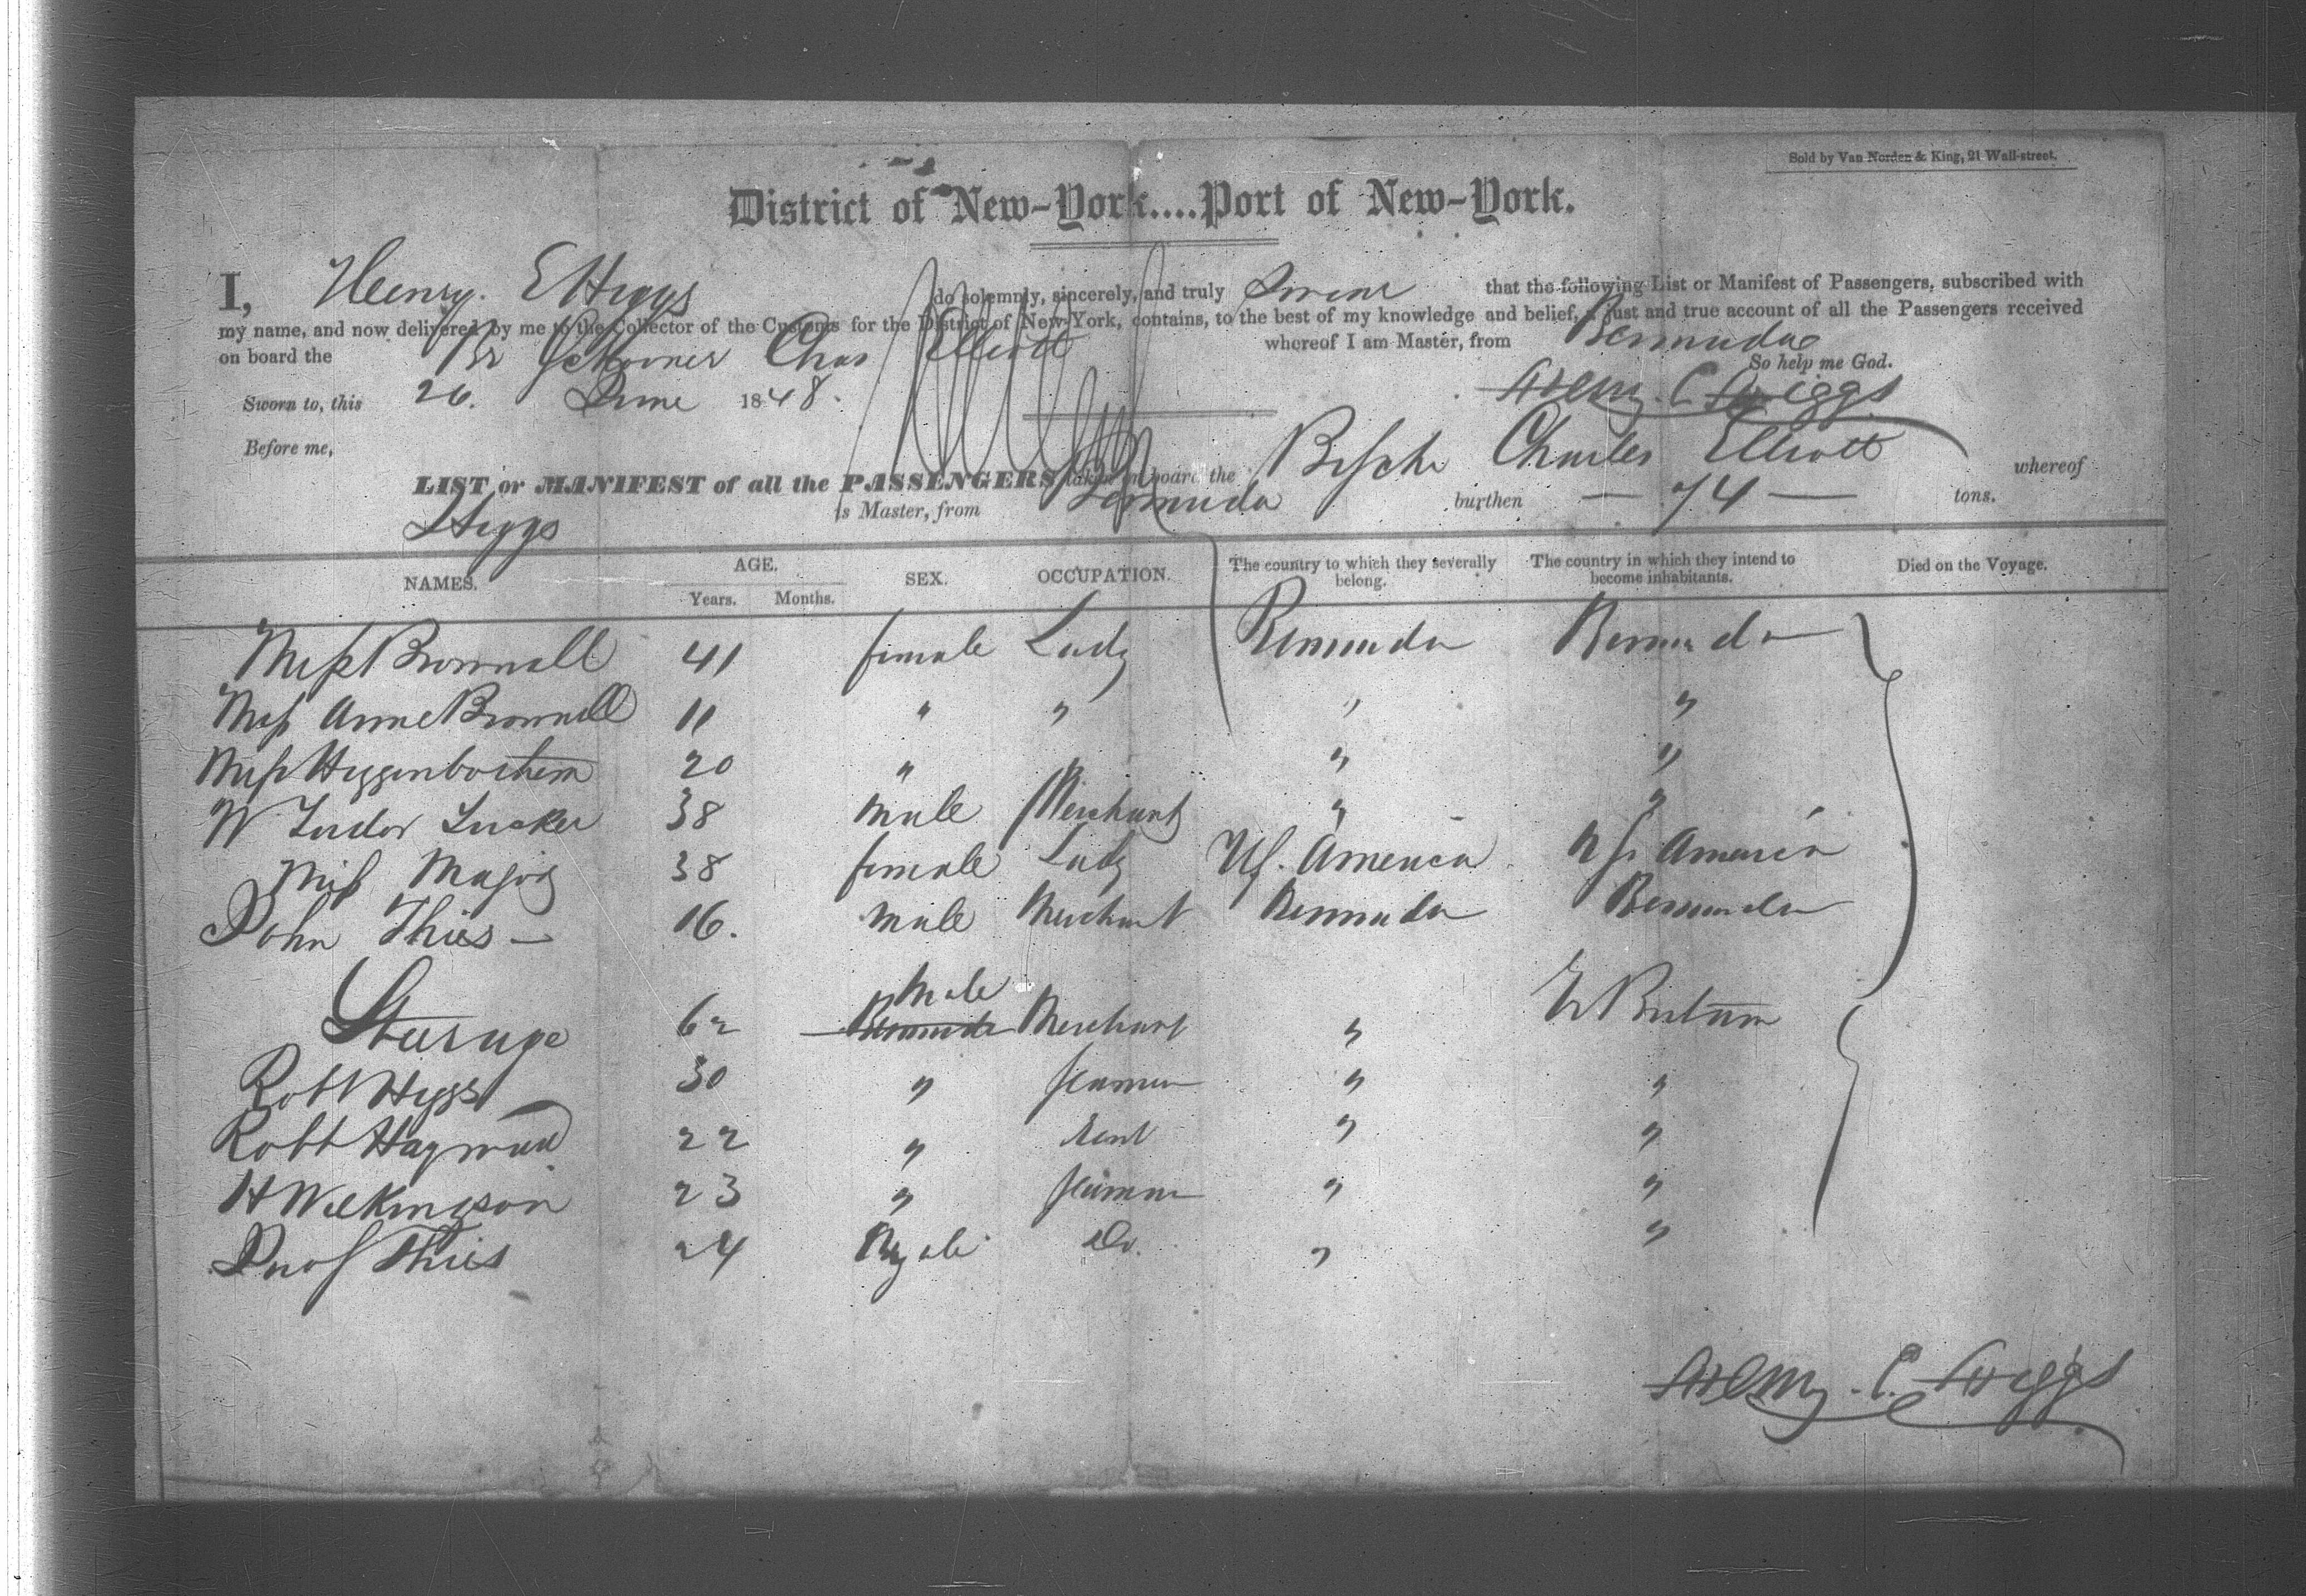 Sold by Van Norden & King, 21 Wall-street.
District of New-York....Port of New-York.
I, Henry E Higgs do solemnly, sincerely, and truly Swear that the following List or Manifest of Passengers, subscribed with
my name, and now delivered by me to the Collector of the Customs for the District of New-York, contains, to the best of my knowledge and belief, a just and true account of all the Passengers received
on board the Br Schooner Chas Elliott whereof I am Master, from Bermuda
So help me God.
Sworn to, this 26. June 1848. Henry. C. Higgs
Before me,
LIST or MANIFEST of all the PASSENGERS taken on board the Br Sch Charles Elliott whereof
Higgs is Master, from Bermuda burthen — 74 — tons.
NAMES. AGE. SEX. OCCUPATION. The country to which they severally belong. The country in which they intend to become inhabitants. Died on the Voyage.
Years. Months.
Miss Brownall 41 female Lady Bermuda Bermuda
Miss Anne Brownell 11 " " " "
Miss Higginbothem 20 " " " "
W Tudor Tucker 38 Male Merchant " "
Miss Major 38 female Lady US. America US. America
John Thies — 16. Male Merchant Bermuda Bermuda
Male
Steerage 62 Bermuda Merchant " Britain
Robt Higgs 30 " seaman " "
Robt Hayward 22 " " "
H Wilkingson 23 " seaman " "
Thies 24 Do. " "
Henry. C. Higgs